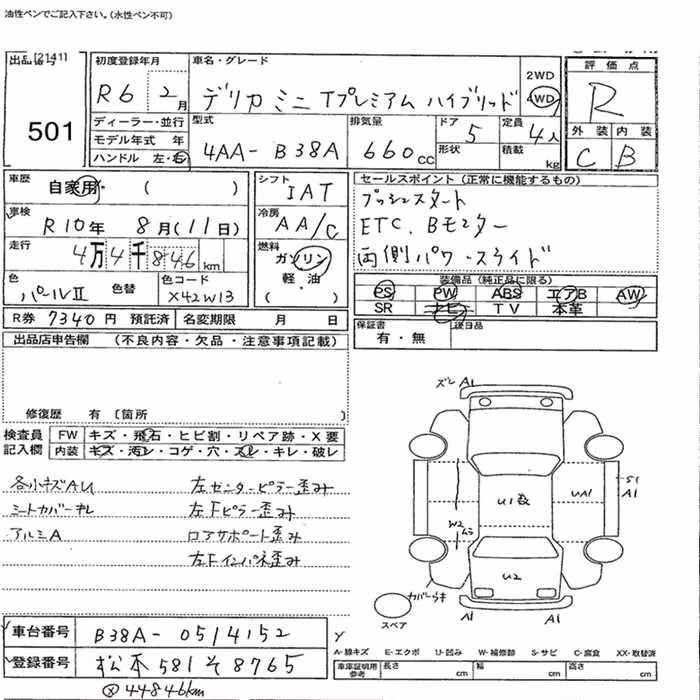 油性ペンでご記入下さい。(水性ペン不可)
出品番号 [2141]
501
初度登録年月
R6 2月
車名・グレード
デリカミニ Tプレミアム ハイブリッド
2WD
4WD
評価点
R
外装 内装
C B
ディーラー・並行
モデル年式 年
ハンドル 左・右
型式
4AA- B38A
排気量
660cc
ドア 5
形状
定員 4人
積載 kg
車歴 自家用・( )
シフト IAT
セールスポイント(正常に機能するもの)
プッシュスタート
ETC. Bモニター
両側パワースライド
車検 R10年 8月(11日)
冷房 AA/C
走行 4万4千846km
燃料 ガソリン
軽・油
( )
色 パールII 色替
色コード X42W13
装備品(純正品に限る)
PS PW ABS エアB AW
SR ナビ TV 本革
R券 7340円 預託済 名変期限 月 日
保証書 有・無
後日品
出品店申告欄 (不良内容・欠品・注意事項記載)
修復歴 有〔箇所 〕
検査員記入欄
FW キズ・飛石・ヒビ割・リペア跡・X要
内装 キズ・汚レ・コゲ・穴・スレ・キレ・破レ
各小キズAU 左センターピラー歪み
シートカバーキレ 左Fピラー歪み
アルミA ロアサポート歪み
左Fインパネ歪み
ズレ A1
U1数
UA1
S1
A1
W2
ムラ
U2
カバーキキ
A1 A1
スペア
車台番号 B38A-0514152
登録番号 松本581そ8765
44846km
A-線キズ E-エクボ U-凹み W-補修跡 S-サビ C-腐食 XX-取替済
車庫証明用参考 長さ cm 幅 cm 高さ cm